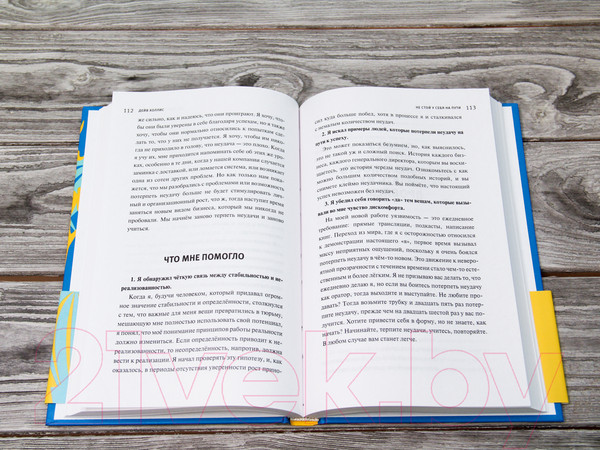 112 ДЕЙВ ХОЛЛИС
же сильно, как и надеюсь, что они проиграют. Я хочу, что-
бы они были уверены в себе благодаря успехам, но я также
хочу, чтобы они нормально относились к попыткам сде-
лать то, что у них не получается. Я хочу, чтобы им никог-
да не приходило в голову, что неудача — это плохо. Когда
я учу их, мне приходится напоминать себе об этих же уро-
ках, особенно в те дни, когда у нашей компании случается
заминка с доставкой, или ломается оборудование или
одна из сотен других проблем. Но как только мы пони-
маем, что мы разобрались с проблемами или возможность
потерпеть неудачу больше не будет стимулировать лич-
ный и организационный рост, что ж, тогда наступит время
заняться новым видом бизнеса, который мы никогда не
пробовали. Мы начнём заново терпеть неудачи и заново
учиться.
ЧТО МНЕ ПОМОГЛО
1. Я обнаружил чёткую связь между стабильностью и не-
реализованностью.
Когда я, будучи человеком, который придавал огром-
ное значение стабильности и определённости, столкнулся
с тем, что важные для меня вещи превратились в тюрьму,
мешающую мне полностью использовать свой потенциал,
я понял, что моё понимание принципов работы реальности
должно измениться. Если определённость приводит к не-
реализованности, то неопределённость, напротив, должна
вести к реализации. Я начал проверять эту гипотезу, и, как
оказалось, в периоды отсутствия уверенности рост прино-
НЕ СТОЙ У СЕБЯ НА ПУТИ 113
сил куда больше побед, хотя в процессе я и сталкивался
с немалым количеством неудач.
2. Я искал примеры людей, которые потерпели неудачу на
пути к успеху.
Это может показаться безумием, но, как выяснилось,
это не такой уж и сложный поиск. История каждого биз-
неса, каждого генерального директора, которым вы восхи-
щаетесь, это история череды неудач. Ознакомьтесь с как
можно большим количеством подобных историй, и вы
снимете клеймо неудачника. Вы поймёте, что настоящий
успех невозможен без неудач.
3. Я убедил себя говорить «да» тем вещам, которые вызы-
вали во мне чувство дискомфорта.
На моей новой работе уязвимость — это ежедневное
требование: прямые трансляции, подкасты, написание
книг. Переход из мира, где я с осторожностью относился
к демонстрации настоящего «я», первое время вызывал
массу неприятных ощущений, поскольку я очень боялся
потерпеть неудачу в чём-то новом. Это движение к неверо-
ятной прозрачности с течением времени стало чем-то есте-
ственным и более лёгким. Я не призываю вас делать то, что
ежедневно делаю я, но если вы боитесь потерпеть неудачу
как оратор, тогда выходите и выступайте. Не любите про-
давать? Тогда возьмите трубку и двадцать пять раз потер-
пите неудачу, прежде чем на двадцать шестой раз у вас по-
лучится. Хотите привести себя в форму, но не знаете, как
начать? Начинайте, терпите неудачи, учитесь, повторяйте.
В любом случае вам станет легче.
21vek.by